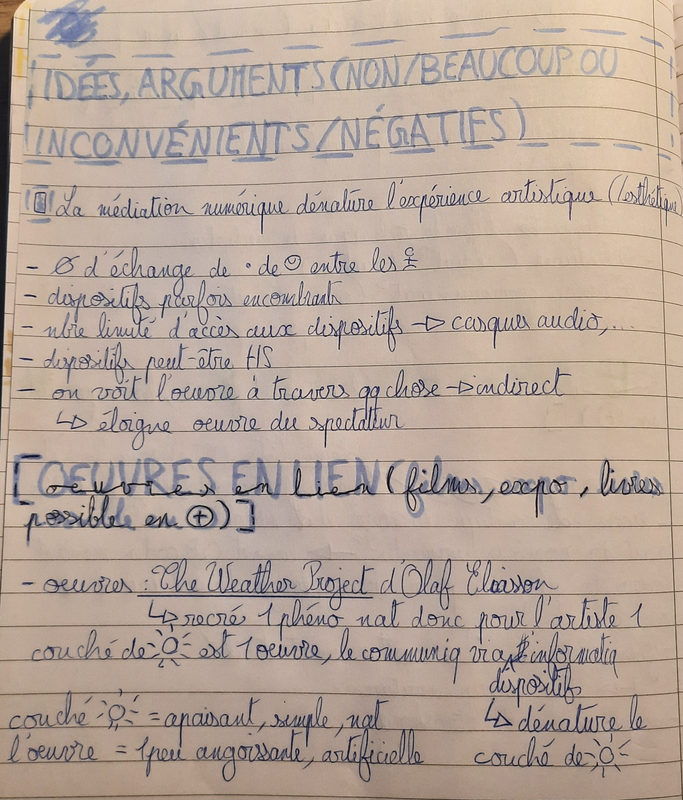 IDÉES, ARGUMENTS (NON/BEAUCOUP OU
INCONVÉNIENTS/NÉGATIFS)
La médiation numérique dénature l'expérience artistique (/esthétique)
- Ø d'échange de • de entre les
- dispositifs parfois encombrants
- nbre limité d'accès aux dispositifs → casques audio,...
- dispositifs peut-être HS
- on voit l'oeuvre à travers qq chose → indirect
↳ éloigne oeuvre du spectateur
[OEUVRES EN LIEN (films, expo, livres
possible en +)]
- oeuvres : The Weather Project d'Olaf Eliasson
↳ recré 1 phéno nat donc pour l'artiste 1
couché de ☼ est 1 oeuvre, le communiq via informatiq
dispositifs
couché ☼ = apaisant, simple, nat ↳ dénature le
l'oeuvre = 1 peu angoissante, artificielle couché de ☼